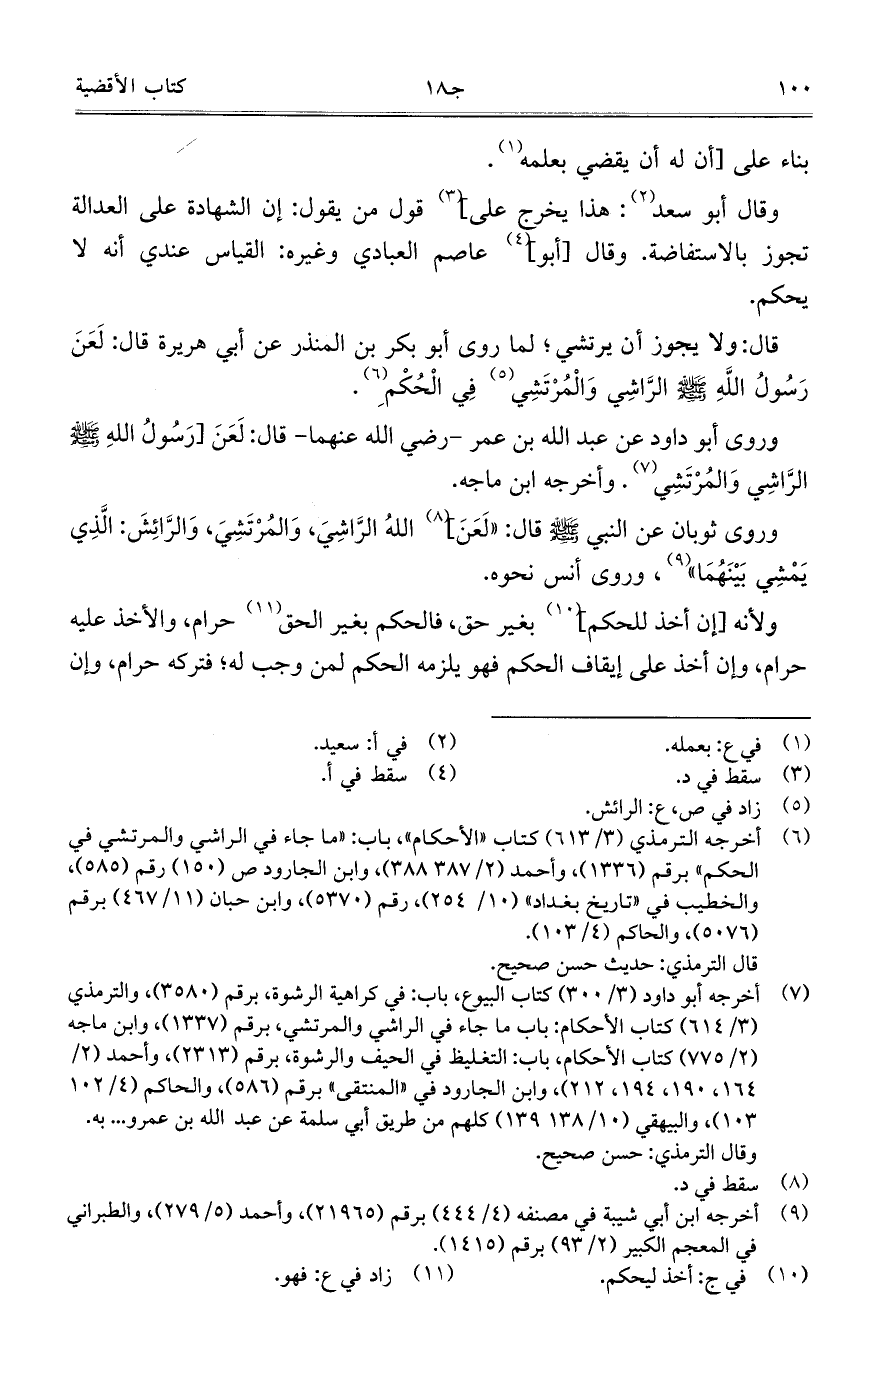 ١٠٠ ج١٨ كتاب الأقضية
بناء على [أن له أن يقضي بعلمه(١).
وقال أبو سعد(٢): هذا يخرج على](٣) قول من يقول: إن الشهادة على العدالة
تجوز بالاستفاضة. وقال [أبو](٤) عاصم العبادي وغيره: القياس عندي أنه لا
يحكم.
قال: ولا يجوز أن يرتشي؛ لما روى أبو بكر بن المنذر عن أبي هريرة قال: لَعَنَ
رَسُولُ اللَّهِ ﷺ الرَّاشِي وَالْمُرْتَشِي(٥) فِي الْحُكْمِ(٦).
وروى أبو داود عن عبد الله بن عمر -رضي الله عنهما- قال: لَعَنَ [رَسُولُ اللهِ ﷺ
الرَّاشِي وَالمُرْتَشِي(٧). وأخرجه ابن ماجه.
وروى ثوبان عن النبي ﷺ قال: «لَعَنَ](٨) اللهُ الرَّاشِيَ، وَالمُرْتَشِيَ، وَالرَّائِشَ: الَّذِي
يَمْشِي بَيْنَهُمَا»(٩)، وروى أنس نحوه.
ولأنه [إن أخذ للحكم](١٠) بغير حق، فالحكم بغير الحق(١١) حرام، والأخذ عليه
حرام، وإن أخذ على إيقاف الحكم فهو يلزمه الحكم لمن وجب له؛ فتركه حرام، وإن
(١) في ع: بعمله. (٢) في أ: سعيد.
(٣) سقط في د. (٤) سقط في أ.
(٥) زاد في ص، ع: الرائش.
(٦) أخرجه الترمذي (٣/ ٦١٣) كتاب «الأحكام»، باب: «ما جاء في الراشي والمرتشي في
الحكم» برقم (١٣٣٦)، وأحمد (٢/ ٣٨٧ ٣٨٨)، وابن الجارود ص (١٥٠) رقم (٥٨٥)،
والخطيب في «تاريخ بغداد» (١٠/ ٢٥٤)، رقم (٥٣٧٠)، وابن حبان (١١/ ٤٦٧) برقم
(٥٠٧٦)، والحاكم (٤/ ١٠٣).
قال الترمذي: حديث حسن صحيح.
(٧) أخرجه أبو داود (٣/ ٣٠٠) كتاب البيوع، باب: في كراهية الرشوة، برقم (٣٥٨٠)، والترمذي
(٣/ ٦١٤) كتاب الأحكام: باب ما جاء في الراشي والمرتشي، برقم (١٣٣٧)، وابن ماجه
(٢/ ٧٧٥) كتاب الأحكام، باب: التغليظ في الحيف والرشوة، برقم (٢٣١٣)، وأحمد (٢/
١٦٤، ١٩٠، ١٩٤، ٢١٢)، وابن الجارود في «المنتقى» برقم (٥٨٦)، والحاكم (٤/ ١٠٢
١٠٣)، والبيهقي (١٠/ ١٣٨ ١٣٩) كلهم من طريق أبي سلمة عن عبد الله بن عمرو... به.
وقال الترمذي: حسن صحيح.
(٨) سقط في د.
(٩) أخرجه ابن أبي شيبة في مصنفه (٤/ ٤٤٤) برقم (٢١٩٦٥)، وأحمد (٥/ ٢٧٩)، والطبراني
في المعجم الكبير (٢/ ٩٣) برقم (١٤١٥).
(١٠) في ج: أخذ ليحكم. (١١) زاد في ع: فهو.